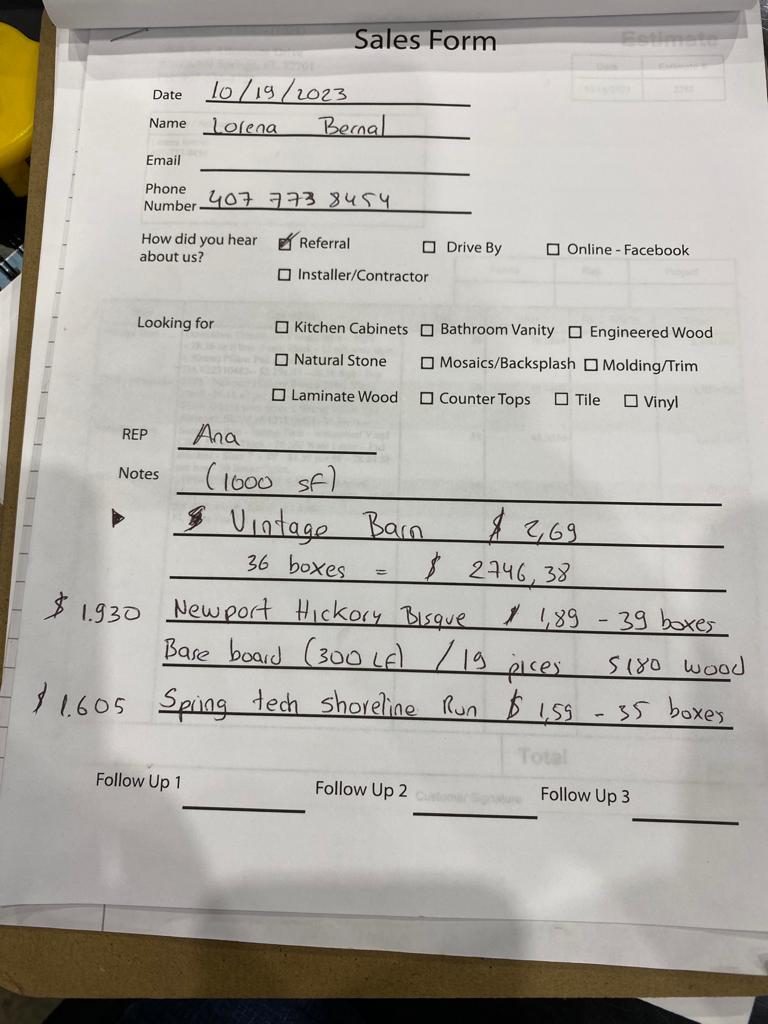 Sales Form
Estimate
Date 10/19/2023
Name Lorena Bernal
Email
Phone Number 407 773 8454
How did you hear about us? ☑ Referral ☐ Drive By ☐ Online - Facebook
☐ Installer/Contractor
Looking for ☐ Kitchen Cabinets ☐ Bathroom Vanity ☐ Engineered Wood
☐ Natural Stone ☐ Mosaics/Backsplash ☐ Molding/Trim
☐ Laminate Wood ☐ Counter Tops ☐ Tile ☐ Vinyl
REP Ana
Notes (1000 SF)
Vintage Barn $ 2,69
36 boxes = $ 2746,38
$ 1.930 Newport Hickory Bisque $ 1,89 - 39 boxes
Base board (300 LF) / 19 pices 5180 wood
$ 1.605 Spring tech shoreline Run $ 1,59 - 35 boxes
Total
Follow Up 1 Follow Up 2 Customer Signature Follow Up 3